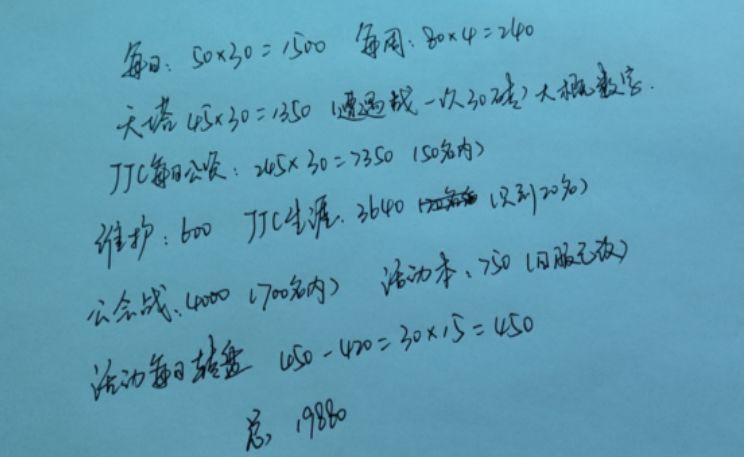 每日：50×30=1500 每周：80×4=240
天塔45×30=1350（遭遇战一次30砖）大概数字.
JJC每日公资：245×30=7350（50名内）
维护：600 JJC生涯：3640（只到20名）
公会战：4000（700名内） 活动本：750（日服无改）
活动每日转盘 450-420=30×15=450
总，19880